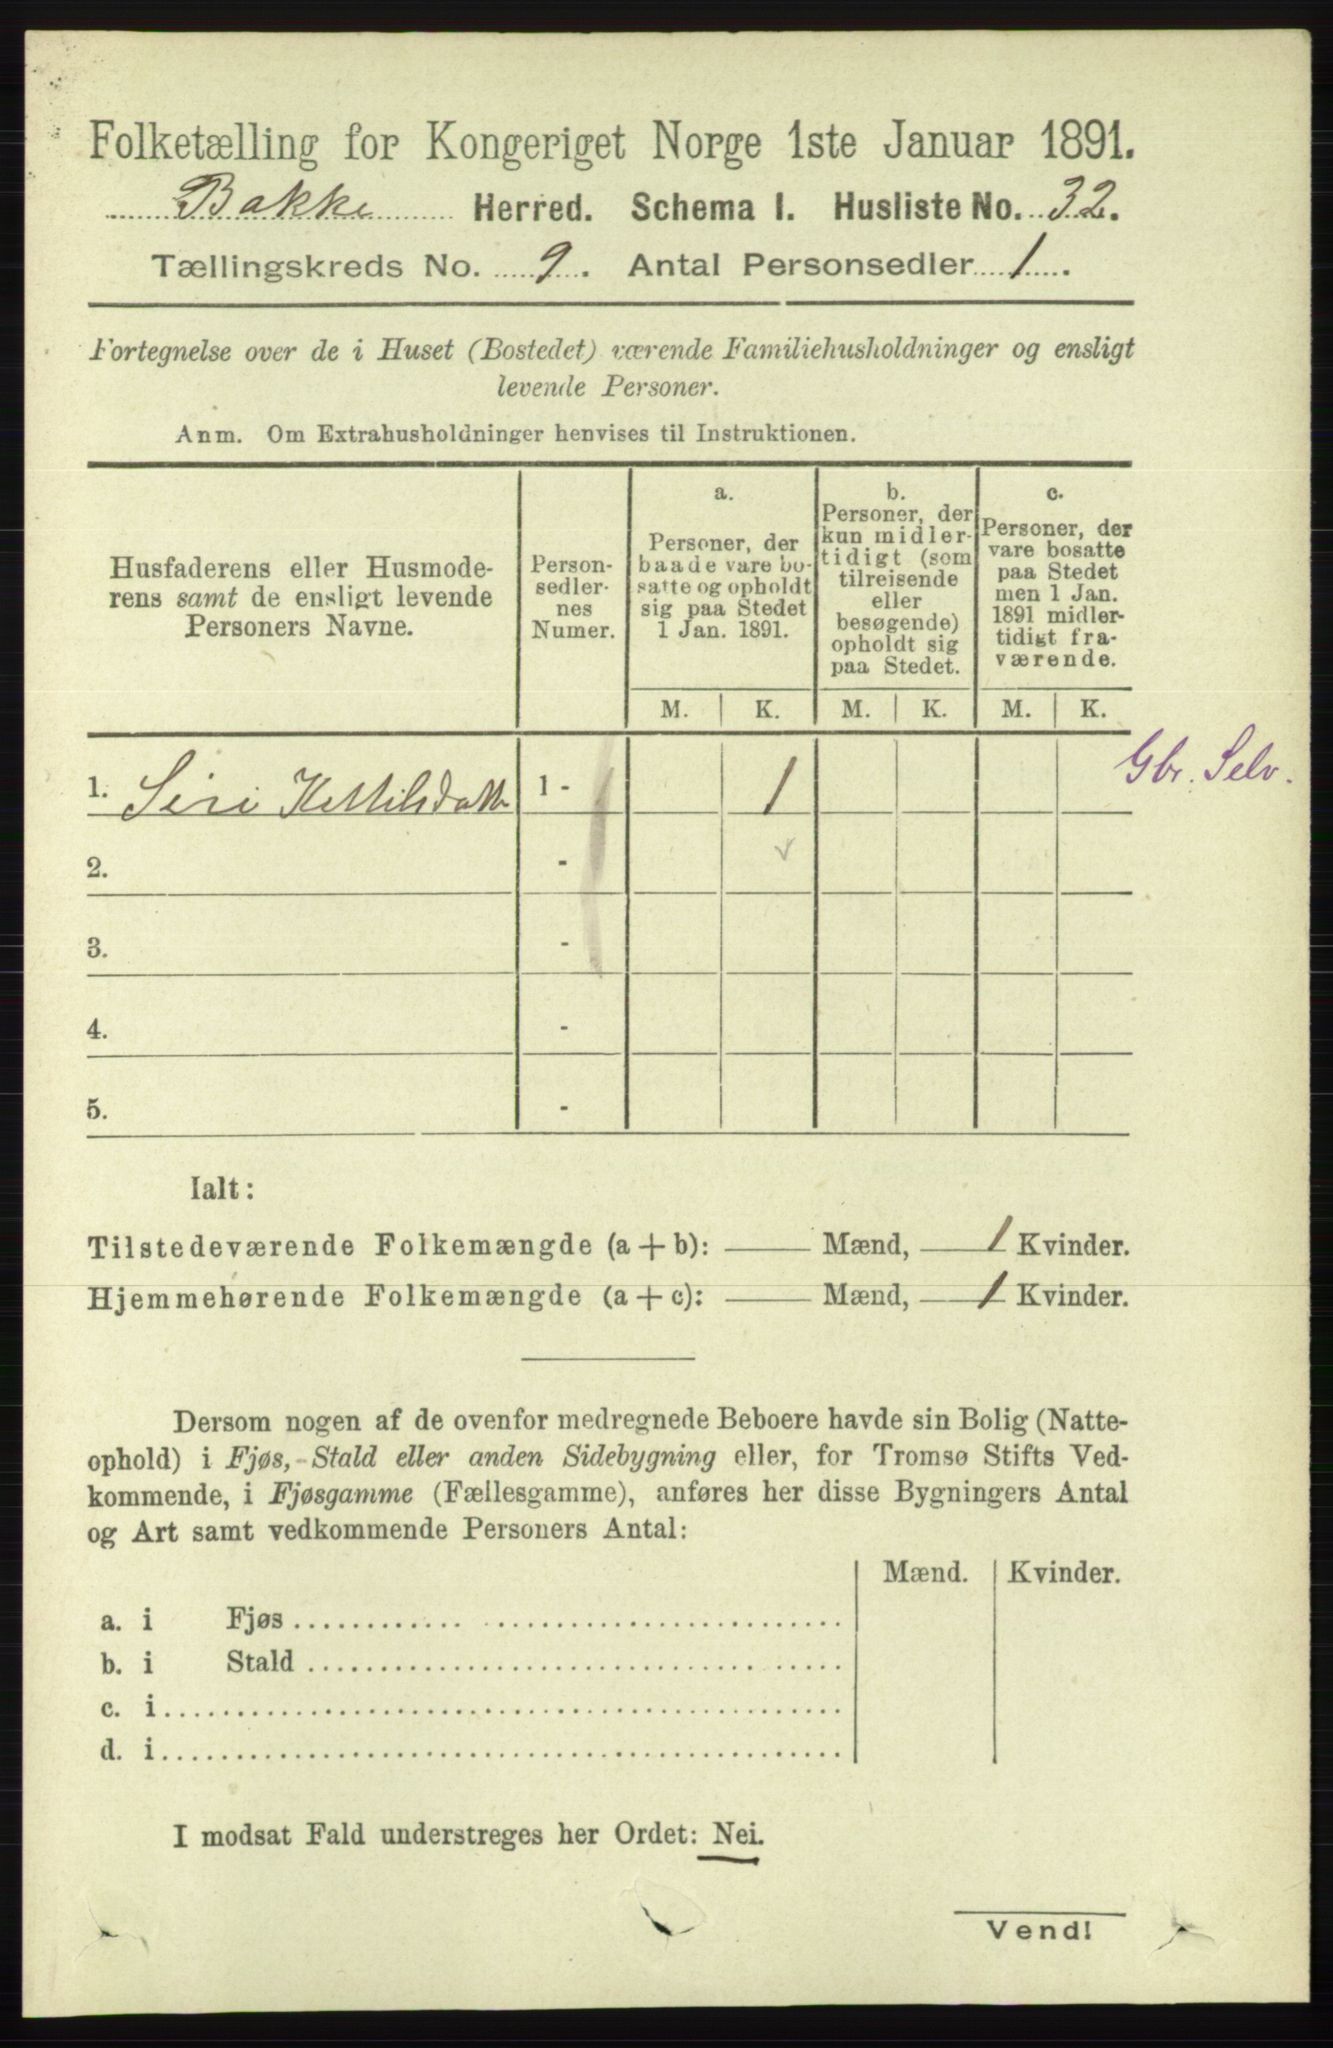 Folketælling for Kongeriget Norge 1ste Januar 1891.
Bakke Herred. Schema I. Husliste No. 32.
Tællingskreds No. 9. Antal Personsedler 1.
Fortegnelse over de i Huset (Bostedet) værende Familiehusholdninger og ensligt
levende Personer.
Anm. Om Extrahusholdninger henvises til Instruktionen.
Husfaderens eller Husmode-
rens samt de ensligt levende
Personers Navne.
Person-
sedler-
nes
Numer.
a.
Personer, der
baade vare bo-
satte og opholdt
sig paa Stedet
1 Jan. 1891.
b.
Personer, der
kun midler-
tidigt (som
tilreisende
eller
besøgende)
opholdt sig
paa Stedet.
c.
Personer, der
vare bosatte
paa Stedet
men 1 Jan.
1891 midler-
tidigt fra-
værende.
M. K. M. K. M. K.
1. Siri Kettilsdatt 1 - 1 Gbr. Selv.
2. -
3. -
4. -
5. -
Ialt:
Tilstedeværende Folkemængde (a + b): — Mænd, 1 Kvinder.
Hjemmehørende Folkemængde (a + c): — Mænd, 1 Kvinder.
Dersom nogen af de ovenfor medregnede Beboere havde sin Bolig (Natte-
ophold) i Fjøs, Stald eller anden Sidebygning eller, for Tromsø Stifts Ved-
kommende, i Fjøsgamme (Fællesgamme), anføres her disse Bygningers Antal
og Art samt vedkommende Personers Antal:
Mænd. Kvinder.
a. i Fjøs
b. i Stald
c. i
d. i
I modsat Fald understreges her Ordet: Nei.
Vend!